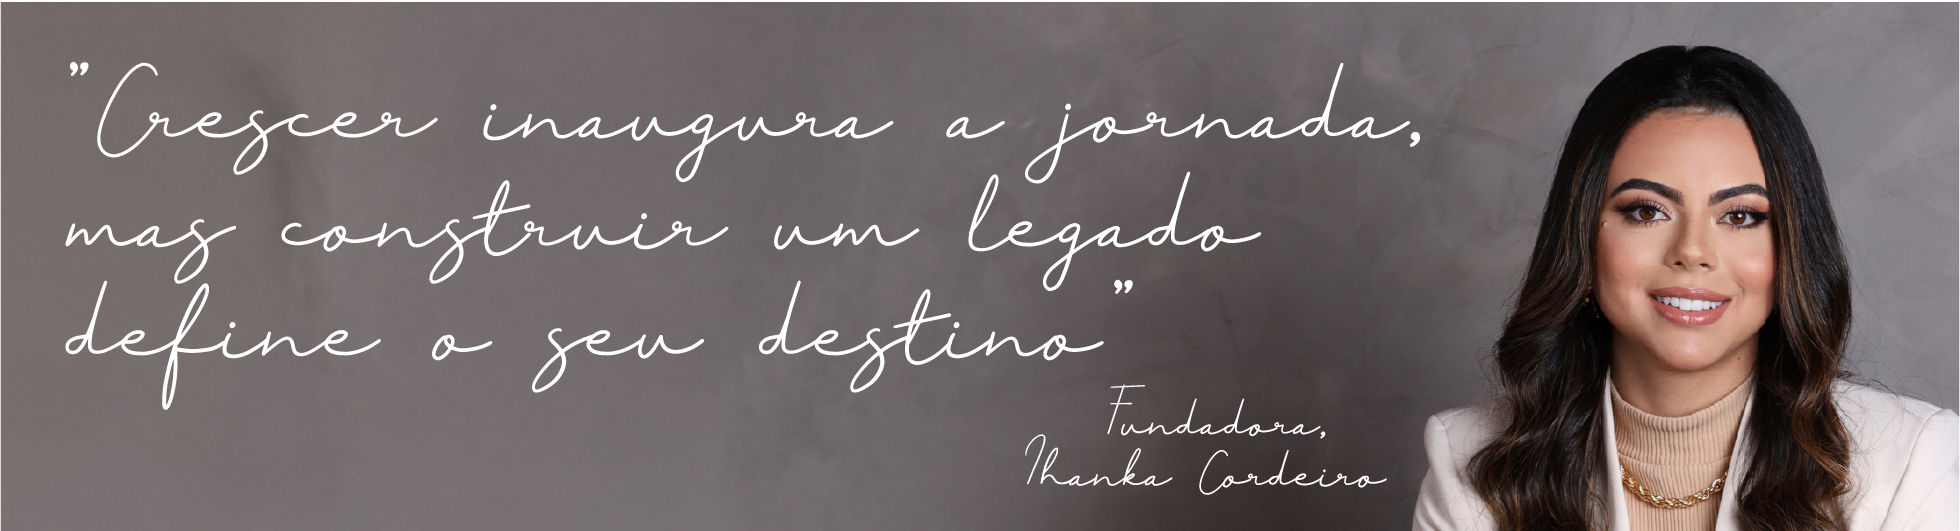 "Crescer inaugura a jornada,
mas construir um legado
define o seu destino"
Fundadora,
Ihanka Cordeiro